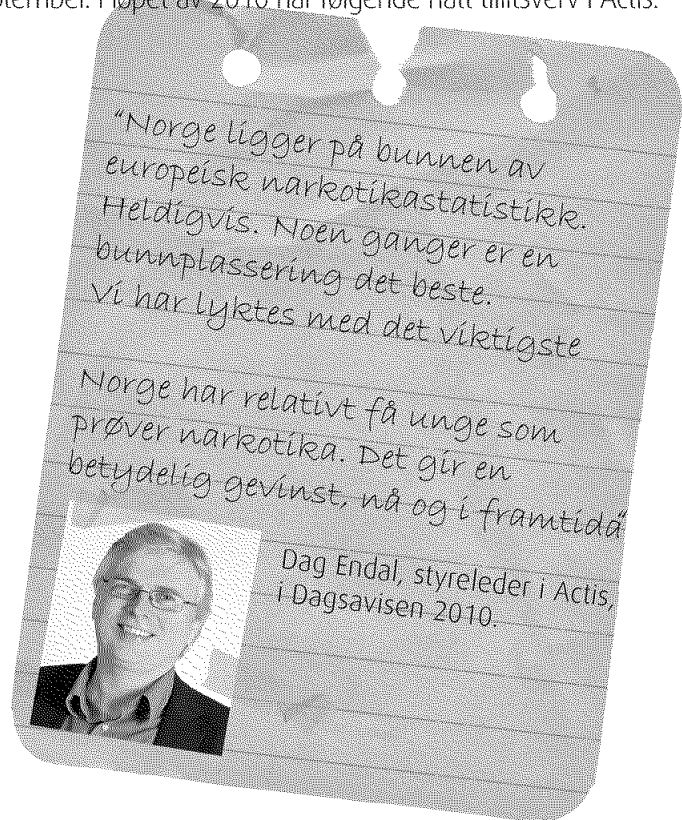 ptember. I løpet av 2010 har følgende hatt tillitsverv i Actis:
“Norge ligger på bunnen av
europeisk narkotikastatistikk.
Heldigvis. Noen ganger er en
bunnplassering det beste.
Vi har lyktes med det viktigste
Norge har relativt få unge som
prøver narkotika. Det gir en
betydelig gevinst, nå og i framtida”
Dag Endal, styreleder i Actis,
i Dagsavisen 2010.